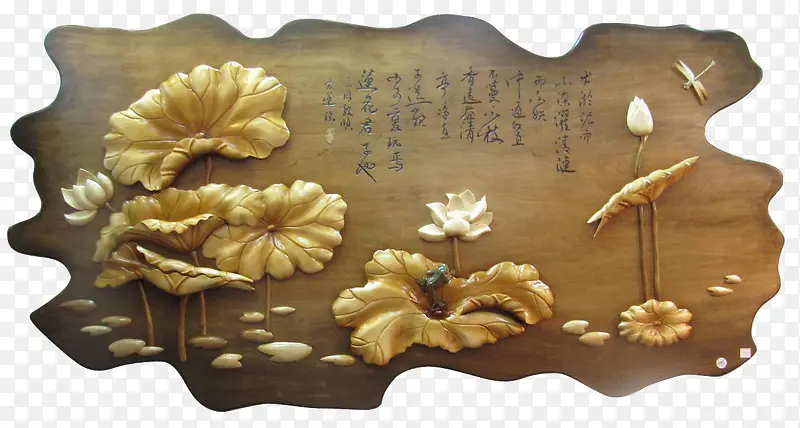 出於泥而
不染濯清漣
而不妖
中通外直
不蔓不枝
香遠益清
亭亭淨直
可遠觀
不可褻玩焉
蓮花君子也